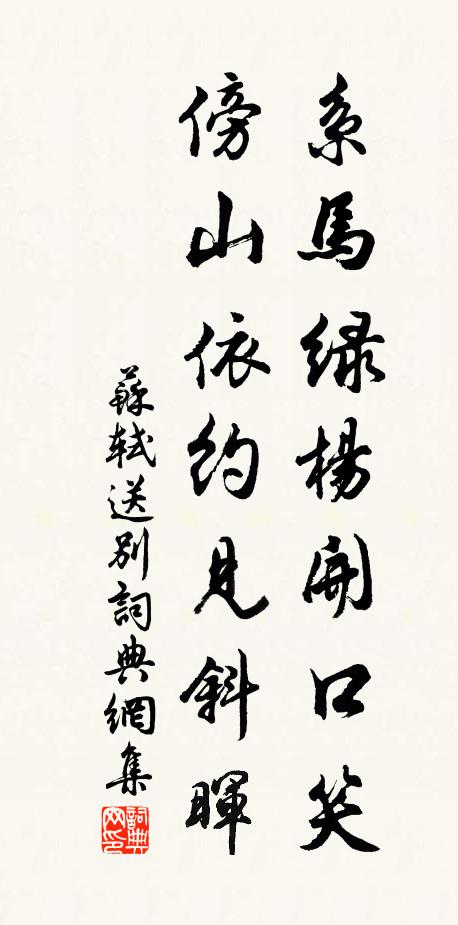 系馬緑楊開口笑
傍山依約見斜暉
蘇軾送別詞典網集
詞典网印